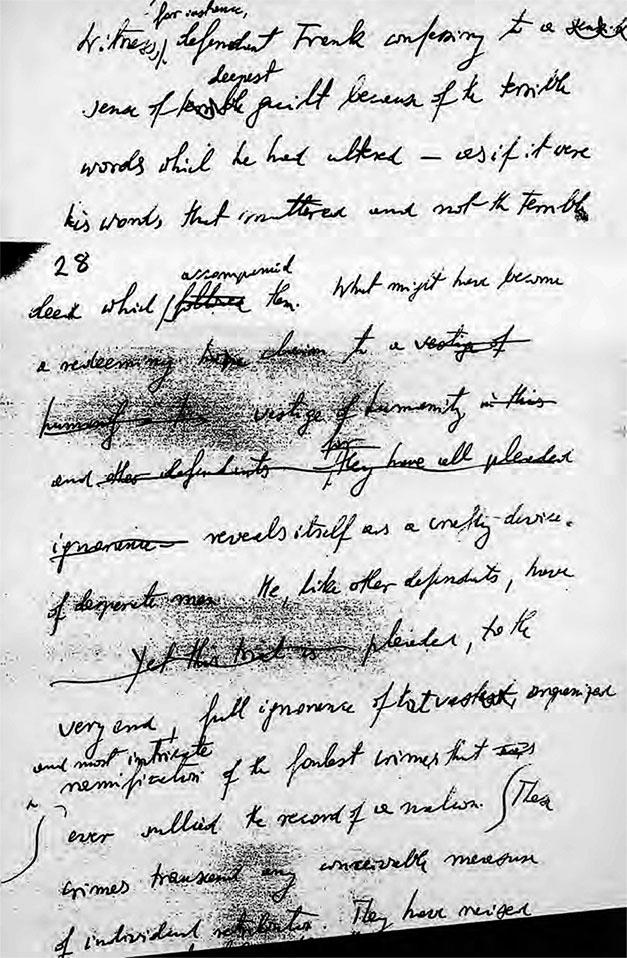 for instance,
Witness, defendant Frank confessing to a
deepest
sense of terrible guilt because of the terrible
words which he had uttered — as if it were
his words that mattered and not the terrible
28
accompanied
deed which followed them. What might have become
a redeeming claim to a vestige of
humanity vestige of humanity in this
and other defendants They have all pleaded
ignorance reveals itself as a crafty device
of desperate men He, like other defendants, have
Yet this trial is pleaded, to the
very end, full ignorance of that vast, organized
and most intricate
ramification of the foulest crimes that
ever sullied the record of a nation. These
crimes transcend any conceivable measure
of individual retribution. They have raised